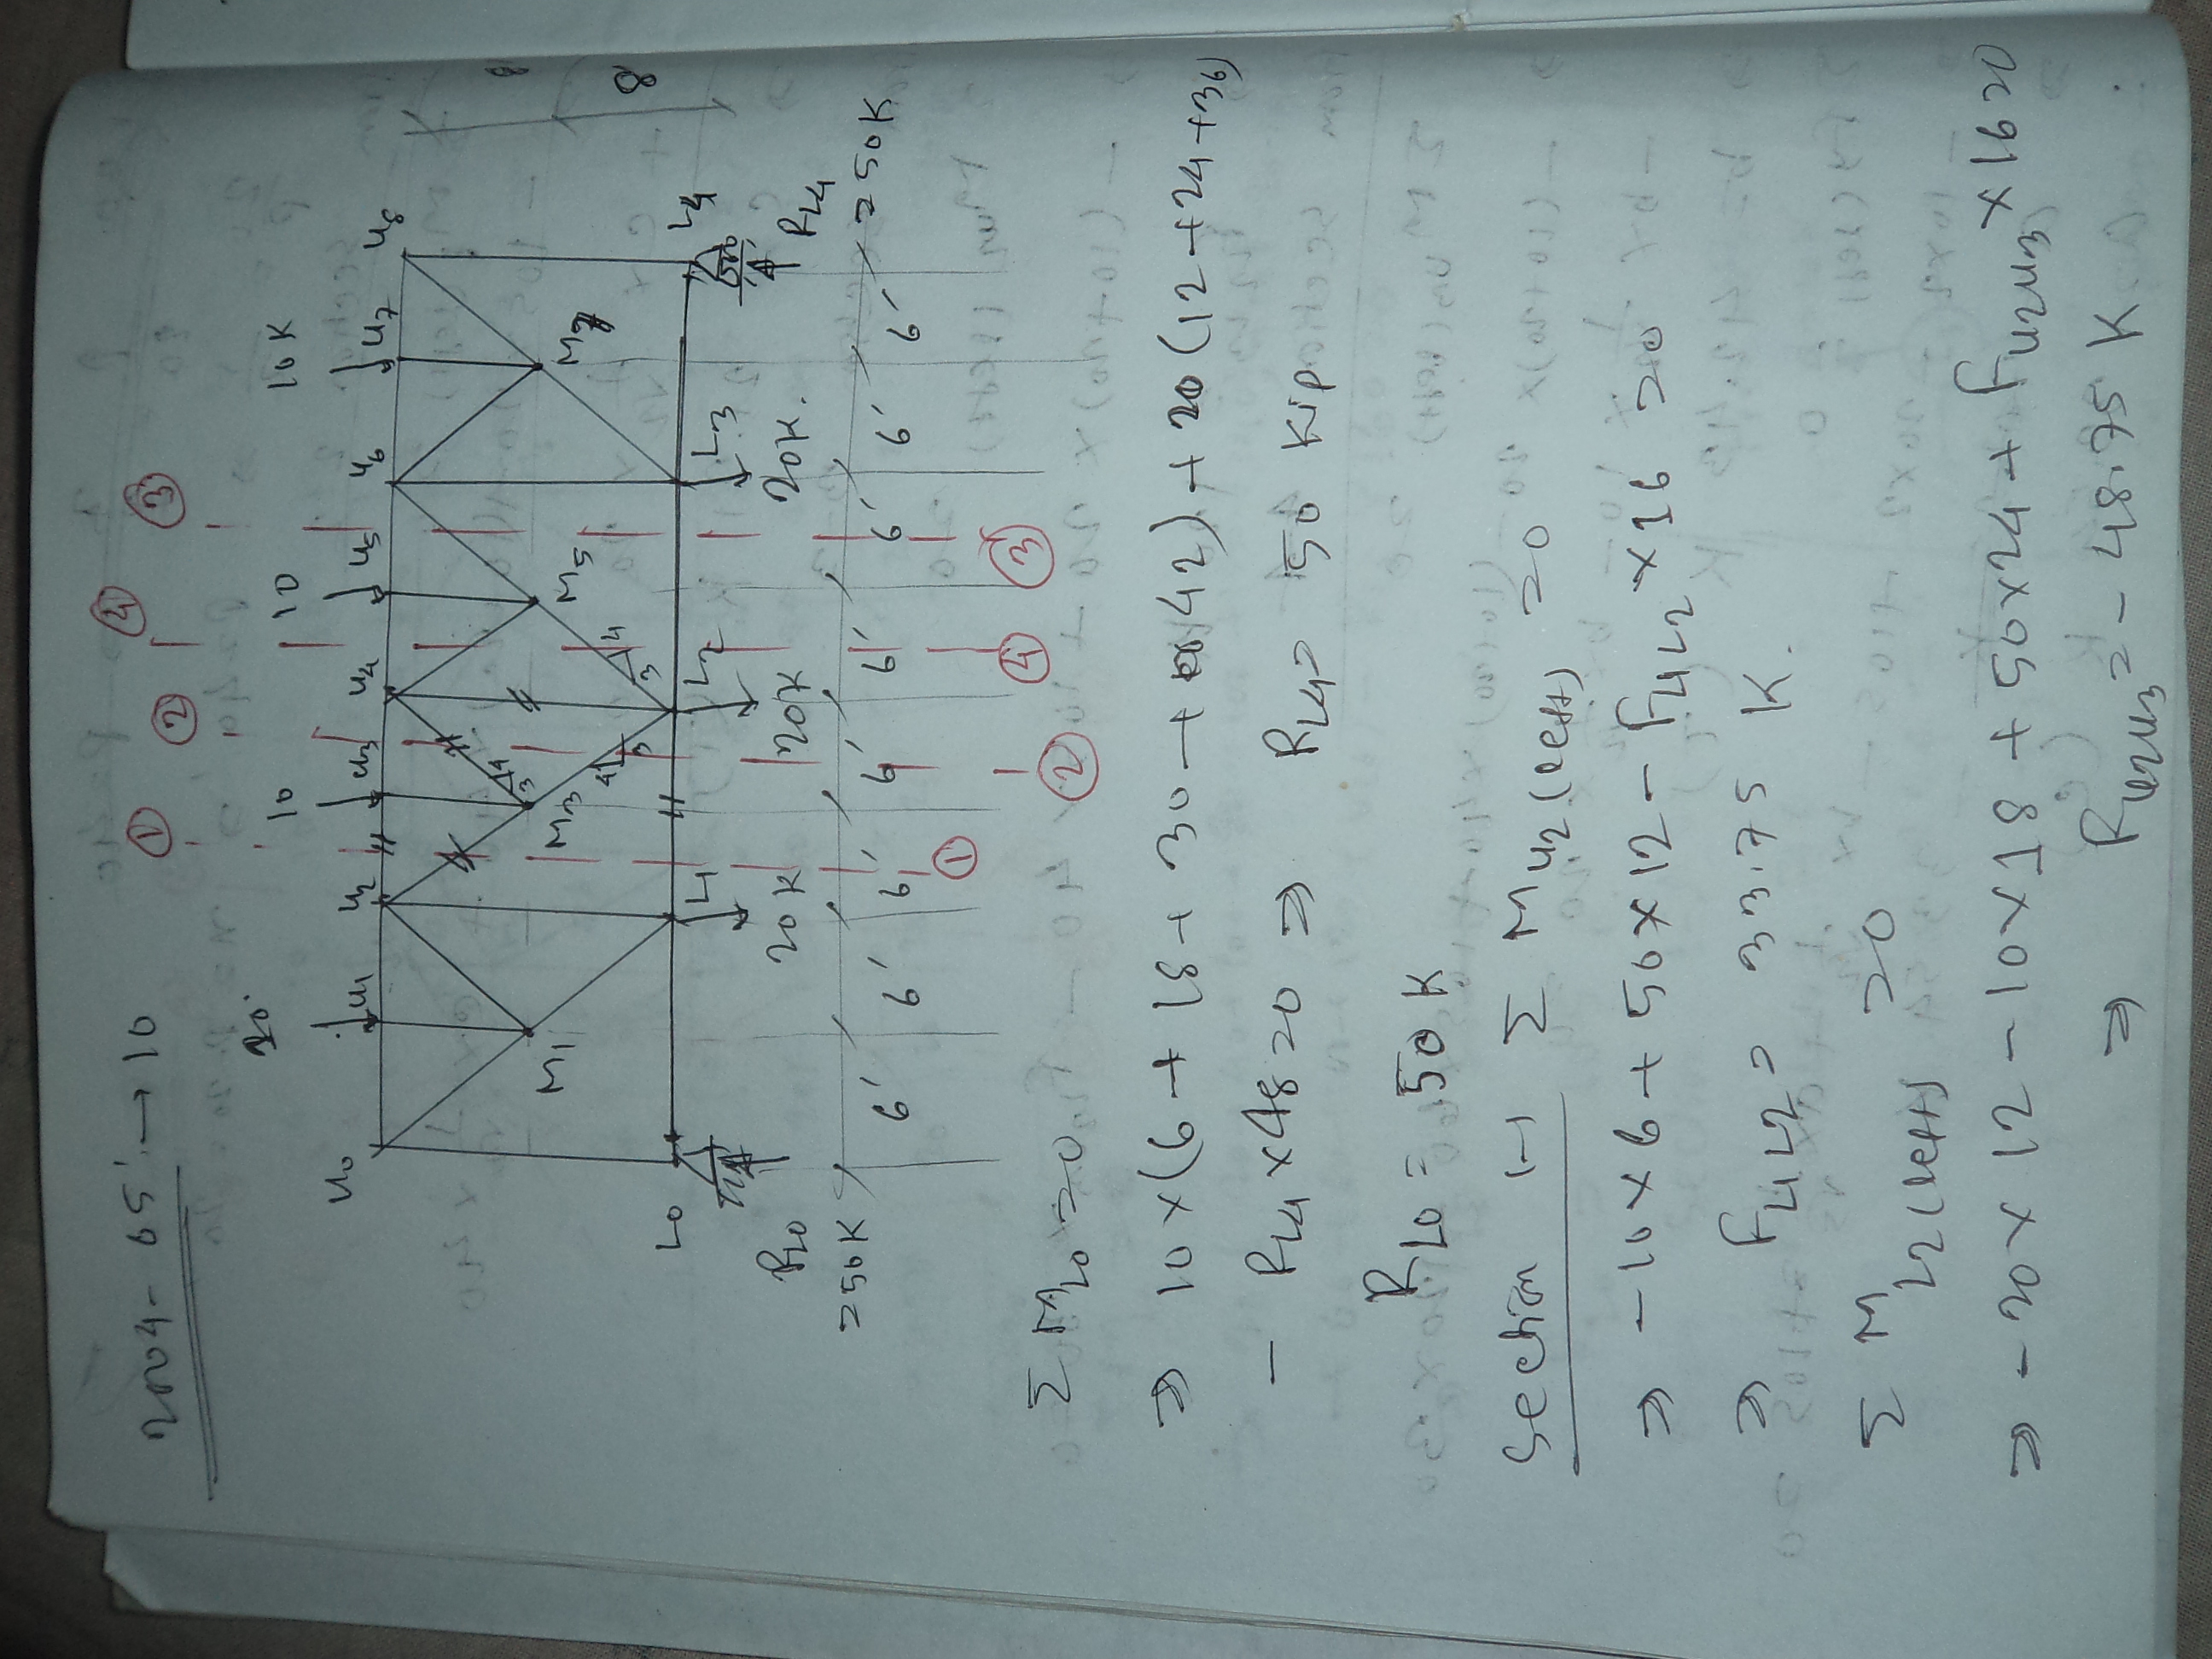 2004-05: → 10
① ② ④ ③
10. 10 10 10 K
U0 U1 U2 U3 U4 U5 U6 U7 U8
M1 M3 M5 M7
3 4 4 3 3 4
8
8
L0 L1 L2 L3 L4
RL0 = 50K 20K 20K 20K. RL4 = 50K
6' 6' 6' 6' 6' 6' 6' 6'
① ② ④ ③
Σ ML0 = 0
⇒ 10 × (6 + 18 + 30 + 42) + 20 (12 + 24 + 36)
- RL4 × 48 = 0 ⇒ RL4 = 50 Kip
RL0 = 50 K
Section 1-1 Σ MU2 (left) = 0
⇒ - 10 × 6 + 50 × 12 - FL1L2 × 16 = 0
⇒ FL1L2 = 33.75 K.
Σ ML2 (left) = 0
⇒ - 20 × 12 - 10 × 18 + 50 × 24 + FU2U3 × 16 = 0
⇒ FU2U3 = - 48.75 K